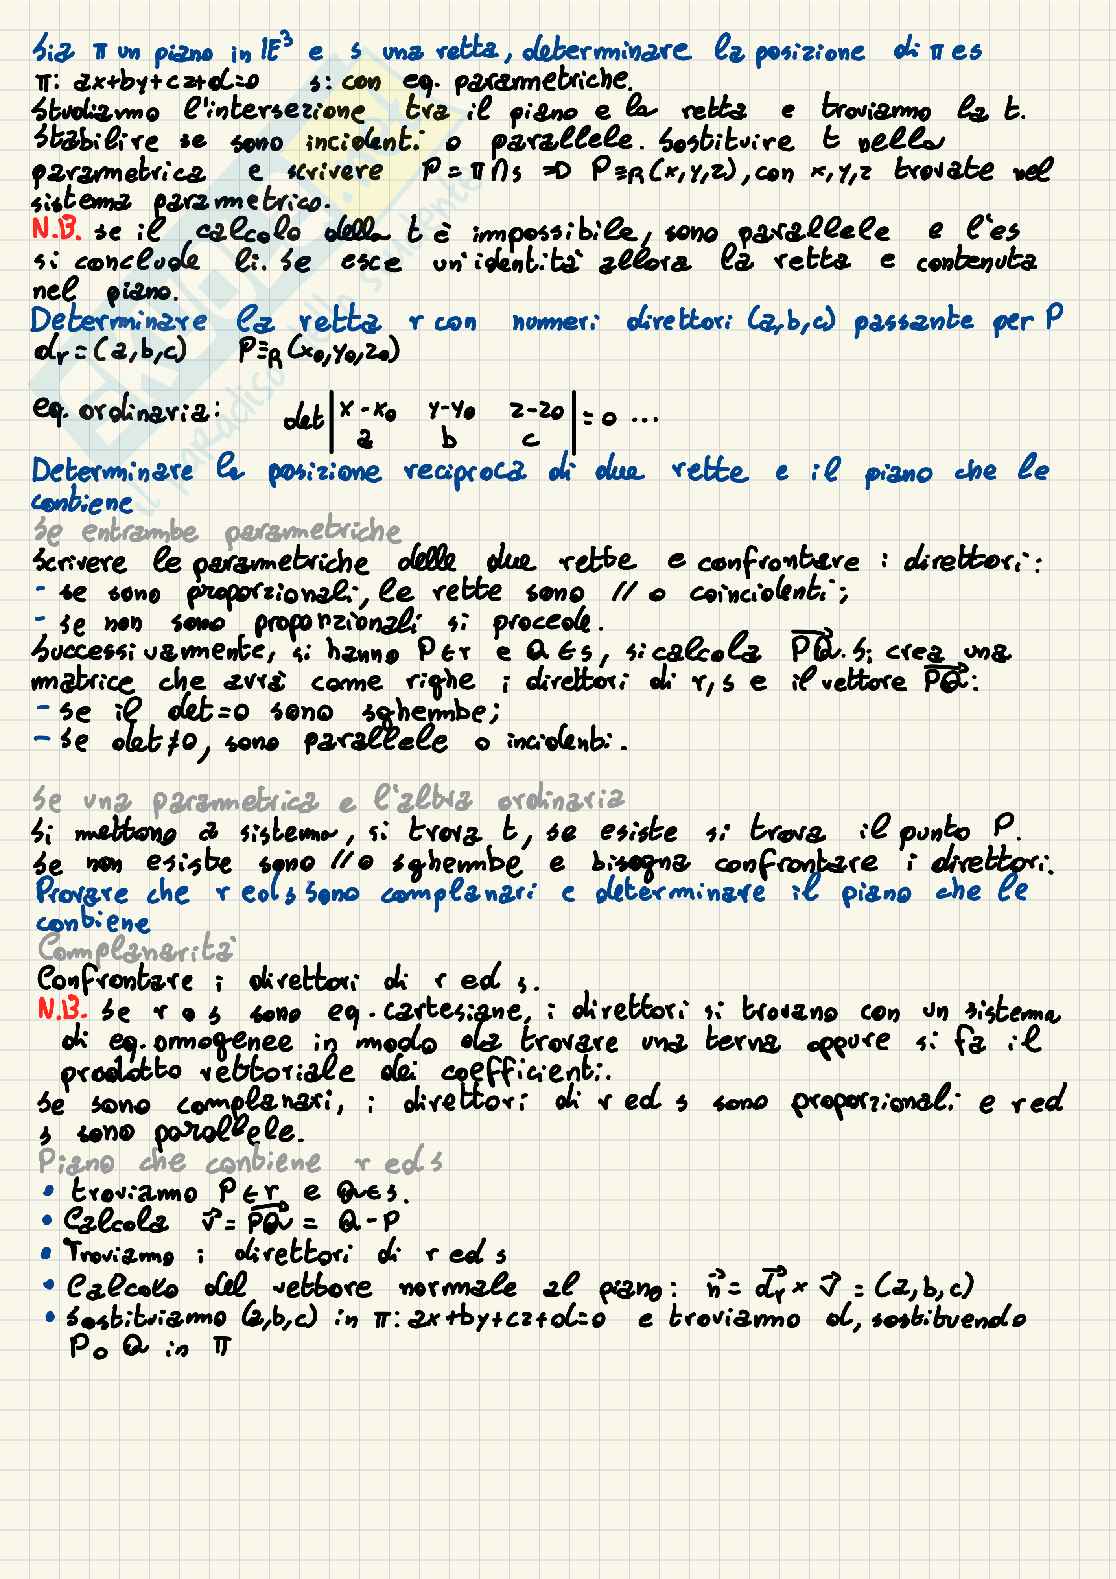 Sia π un piano in IE³ e s una retta, determinare la posizione di π e s
π: ax+by+cz+d=0 s: con eq. parametriche.
Studiamo l'intersezione tra il piano e la retta e troviamo la t.
Stabilire se sono incidenti o parallele. Sostituire t nella
parametrica e scrivere P = π∩s ⇒ P≡R(x,y,z), con x,y,z trovate nel
sistema parametrico.
N.B. se il calcolo della t è impossibile, sono parallele e l'es
si conclude lì. Se esce un'identità allora la retta e contenuta
nel piano.
Determinare la retta r con numeri direttori (a,b,c) passante per P
dr=(a,b,c) P≡R(x0,y0,z0)
eq. ordinaria: det | x-x0 y-y0 z-z0 | = 0 ...
a b c
Determinare la posizione reciproca di due rette e il piano che le
contiene
Se entrambe parametriche
Scrivere le parametriche delle due rette e confrontare i direttori:
- se sono proporzionali, le rette sono // o coincidenti;
- se non sono proporzionali si procede.
Successivamente, si hanno P∈r e Q∈s, si calcola PQ. Si crea una
matrice che avrà come righe i direttori di r,s e il vettore PQ:
- se il det=0 sono sghembe;
- se det≠0, sono parallele o incidenti.
Se una parametrica e l'altra ordinaria
Si mettono a sistema, si trova t, se esiste si trova il punto P.
Se non esiste sono // o sghembe e bisogna confrontare i direttori.
Provare che r ed s sono complanari e determinare il piano che le
contiene
Complanarità
Confrontare i direttori di r ed s.
N.B. Se r o s sono eq. cartesiane, i direttori si trovano con un sistema
di eq. omogenee in modo da trovare una terna oppure si fa il
prodotto vettoriale dei coefficienti.
Se sono complanari, i direttori di r ed s sono proporzionali e r ed
s sono parallele.
Piano che contiene r ed s
• troviamo P∈r e Q∈s.
• Calcola v⃗ = PQ = Q-P
• Troviamo i direttori di r ed s
• Calcolo del vettore normale al piano: n⃗ = dr × v⃗ = (a,b,c)
• Sostituiamo (a,b,c) in π: ax+by+cz+d=0 e troviamo d, sostituendo
P o Q in π